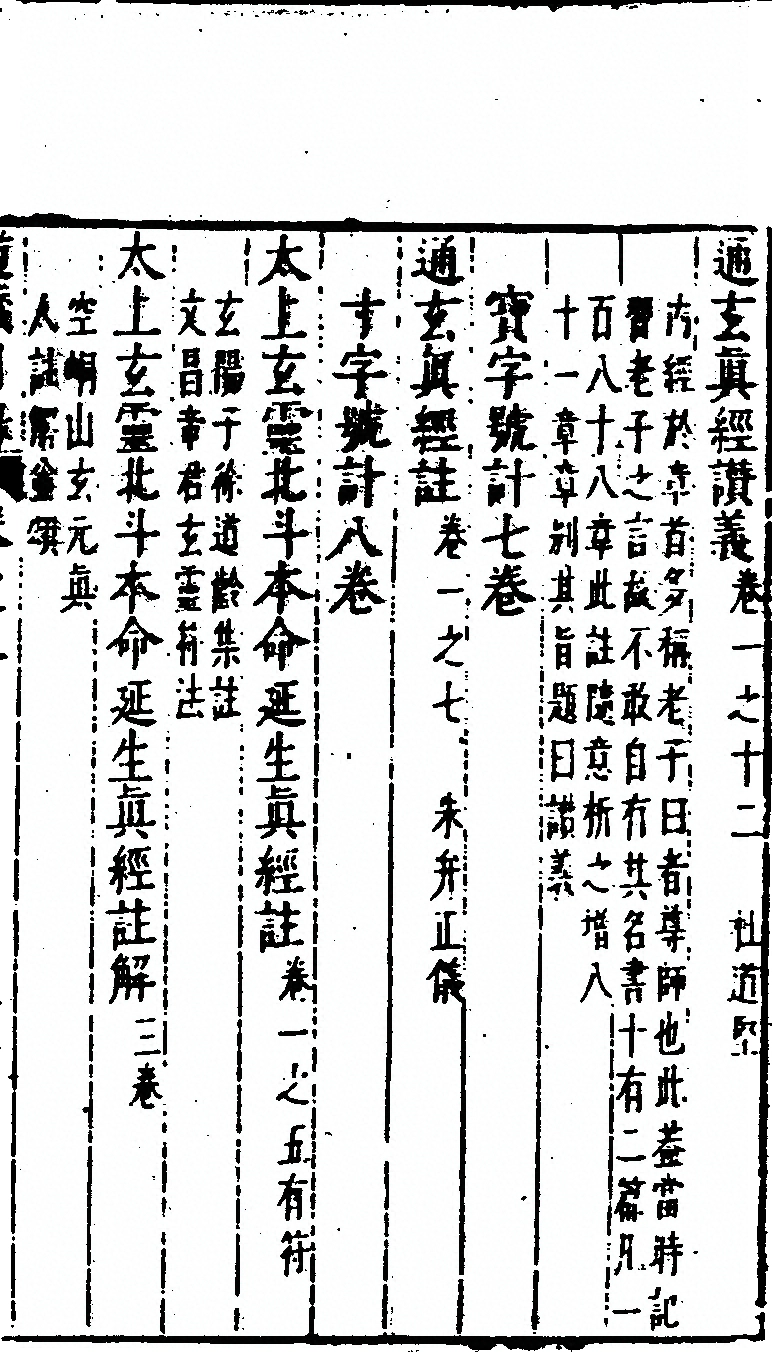 通玄眞經讚義卷一之十二　杜道堅
内經於章首多稱老子曰者尊師也此蓋當時記
習老子之言故不敢自有其名書十有二篇凡一
百八十八章此註隨意析之增八
十一章章別其旨題曰讚義
寶字號計七卷
通玄眞經註卷一之七　朱弁正儀
寸字號計八卷
太上玄靈北斗本命延生眞經註卷一之五有符
玄陽子徐道齡集註
文昌帝君玄靈符法
太上玄靈北斗本命延生眞經註解三卷
空峒山玄元眞
人註解金頌